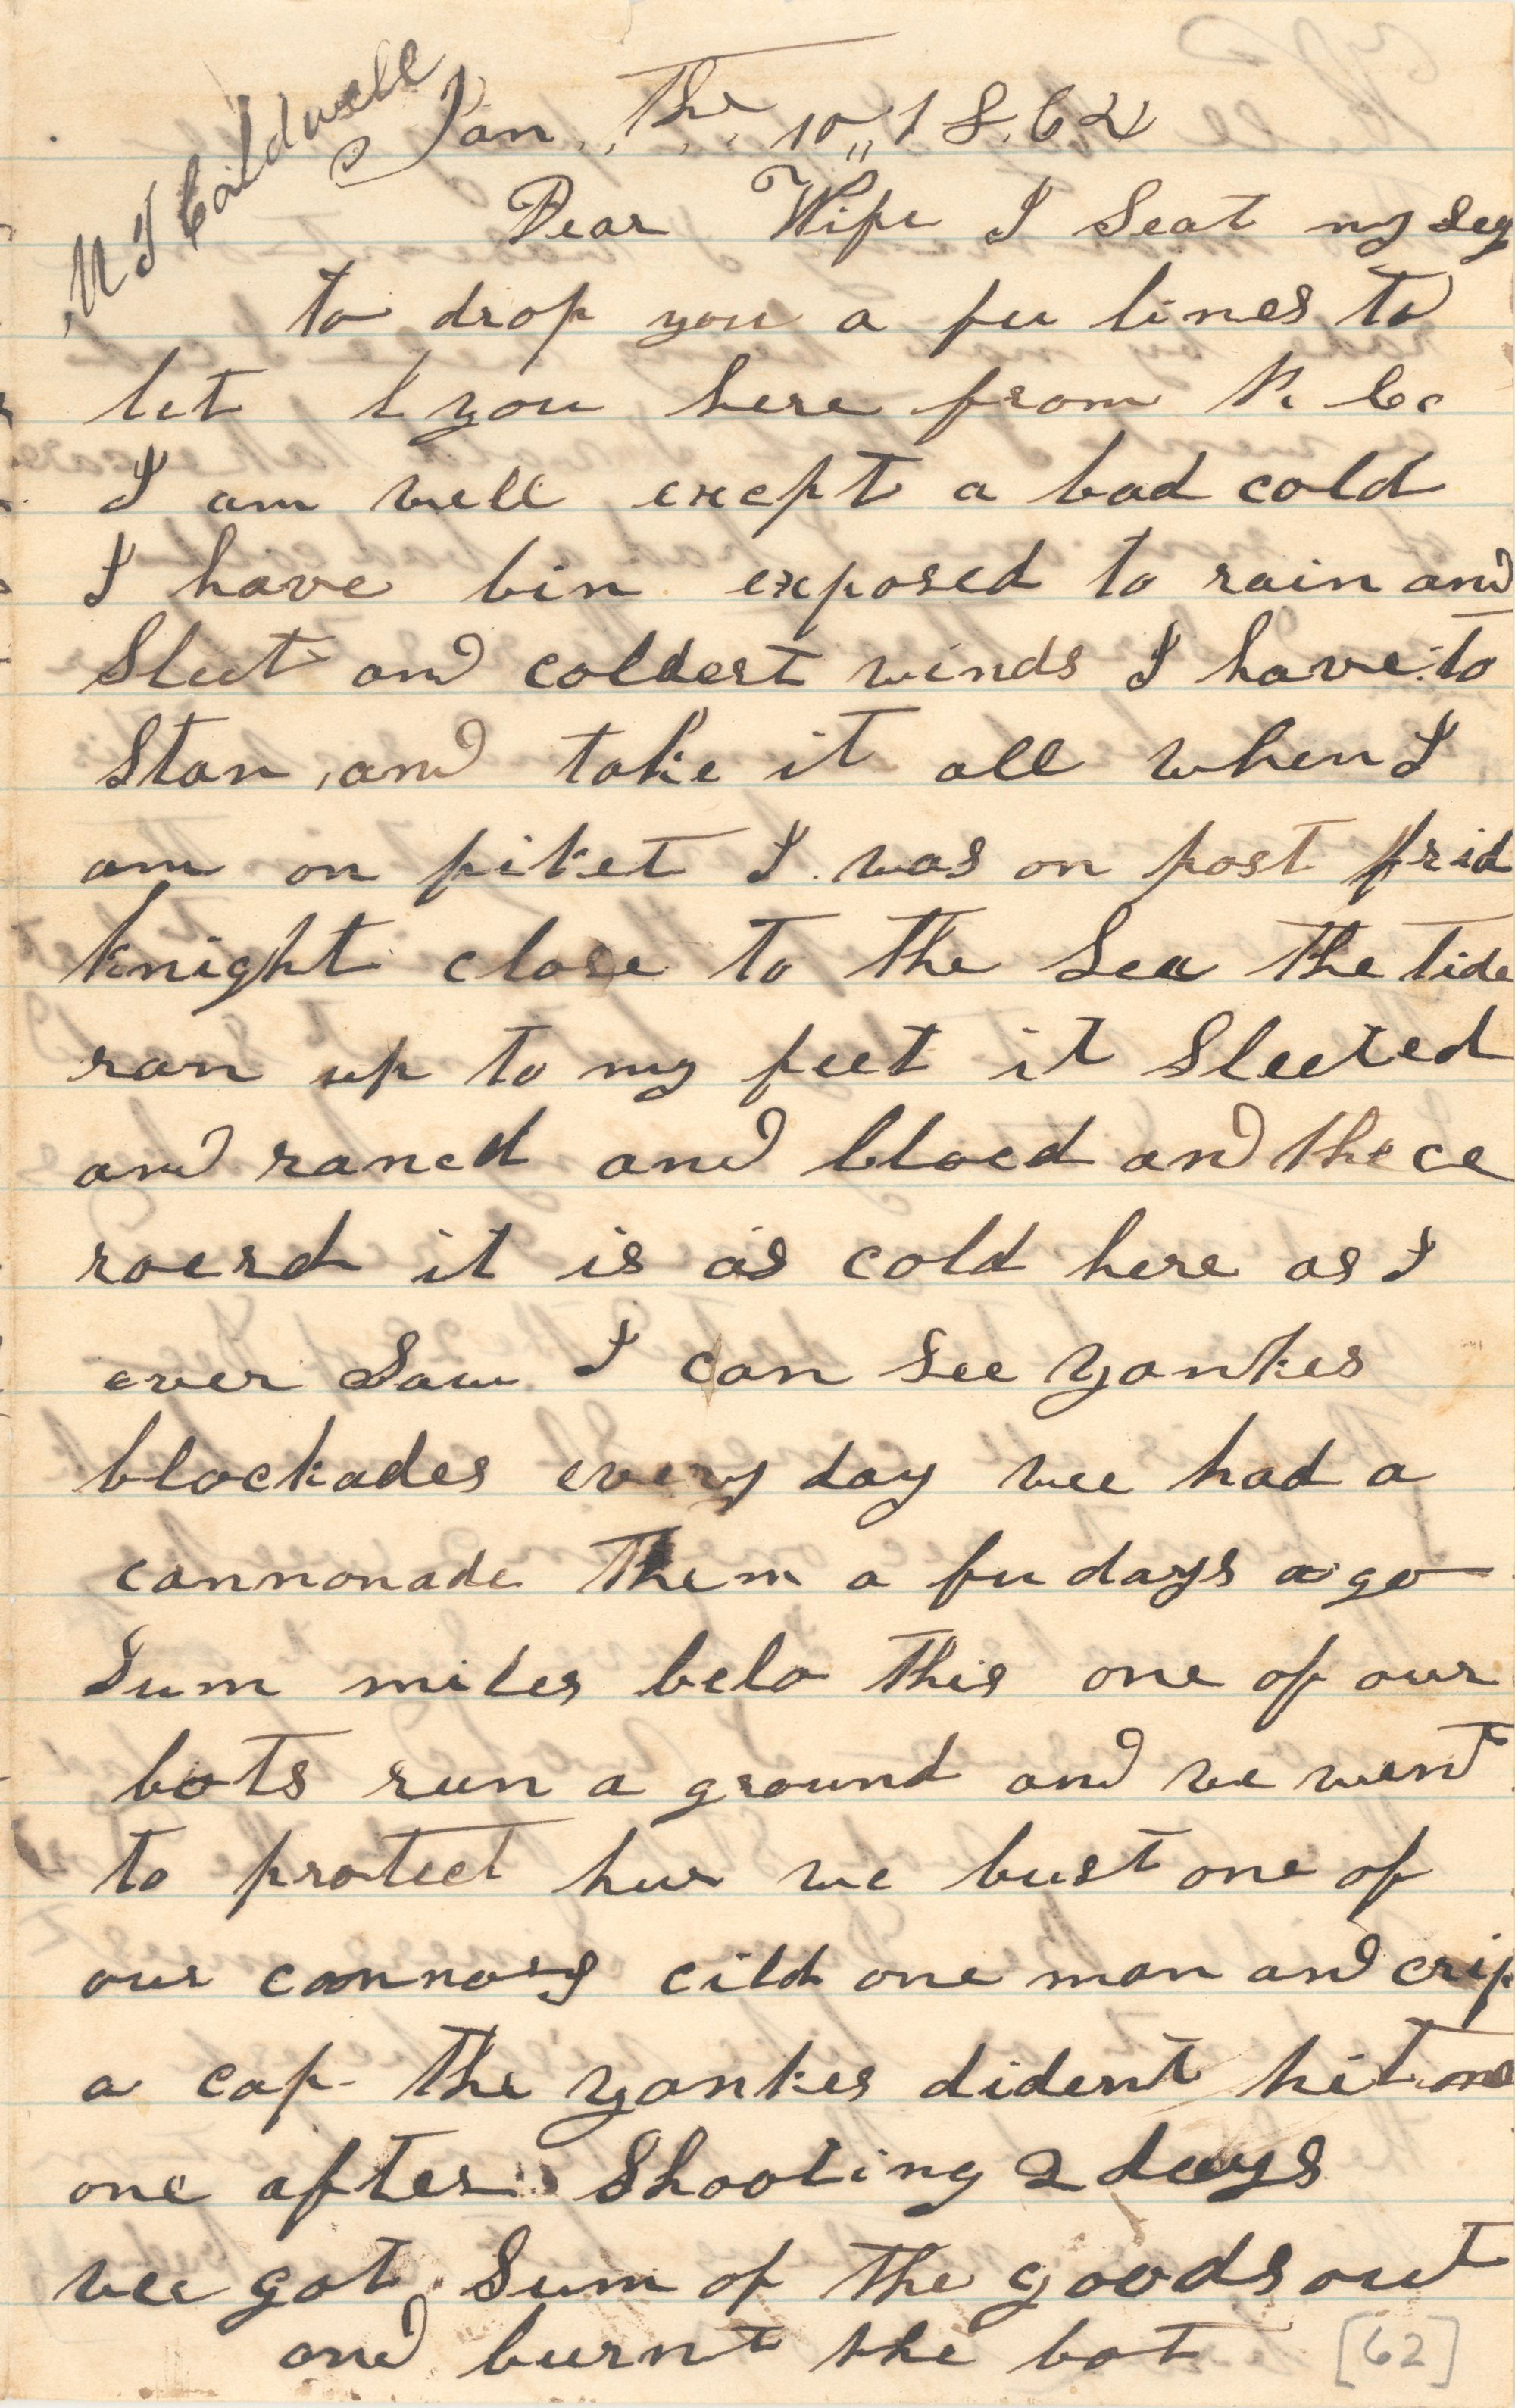 M J Caldwell
Jan. The. 10,, 1862
Dear Wife I Seat my seg
to drop you a fu lines to
let you here from N. C.
I am well exept a bad cold
I have bin exposed to rain and
Sleet and coldest winds I have to
Stan and take it all when I
am on piket I was on post frid
knight close to the Sea the tide
ran up to my feet it Sleeted
and raned and bloed and the ce
roerd it is as cold here as I
ever Saw I can See yankes
blockades every day wee had a
cannonade them a fu days a go
Sum miles belo this one of our
bots run a ground and we went
to protect hur we bust one of
our cannons cild one man and crip
a cap the yankes dident hit
one after Shooting 2 days
wee got Sum of the goods out
and burnt the bot
[62]